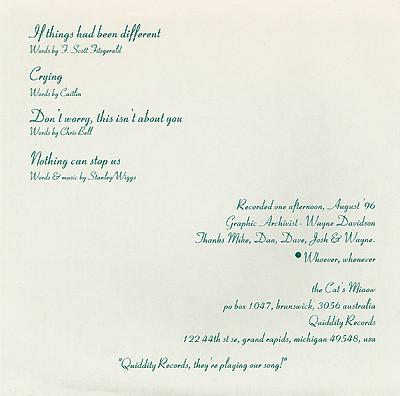 If things had been different
Words by F. Scott Fitzgerald
Crying
Words by Caitlin
Don't worry, this isn't about you
Words by Chris Bell
Nothing can stop us
Words & music by Stanley/Wiggs
Recorded one afternoon, August '96
Graphic Archivist - Wayne Davidson
Thanks Mike, Dan, Dave, Josh & Wayne.
Whoever, whenever
the Cat's Miaow
po box 1047, brunswick, 3056 australia
Quiddity Records
122 44th st se, grand rapids, michigan 49548, usa
"Quiddity Records, they're playing our song!"